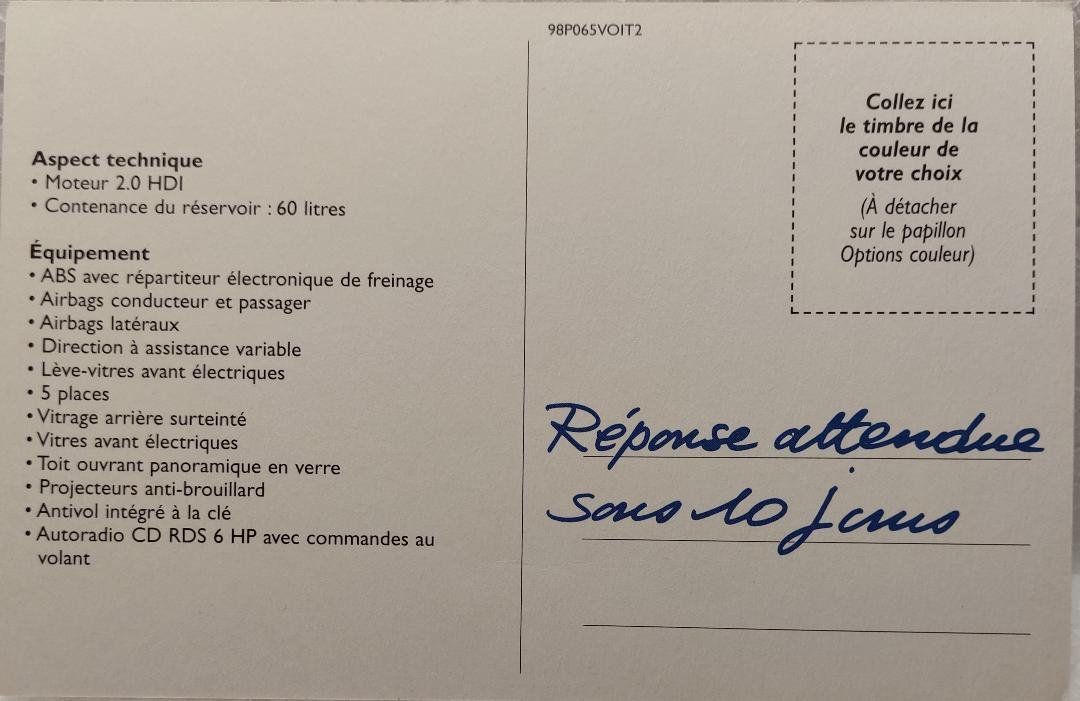 98P065VOIT2
Aspect technique
• Moteur 2.0 HDI
• Contenance du réservoir : 60 litres
Équipement
• ABS avec répartiteur électronique de freinage
• Airbags conducteur et passager
• Airbags latéraux
• Direction à assistance variable
• Lève-vitres avant électriques
• 5 places
• Vitrage arrière surteinté
• Vitres avant électriques
• Toit ouvrant panoramique en verre
• Projecteurs anti-brouillard
• Antivol intégré à la clé
• Autoradio CD RDS 6 HP avec commandes au
volant
Collez ici
le timbre de la
couleur de
votre choix
(À détacher
sur le papillon
Options couleur)
Réponse attendue
sous 10 jours